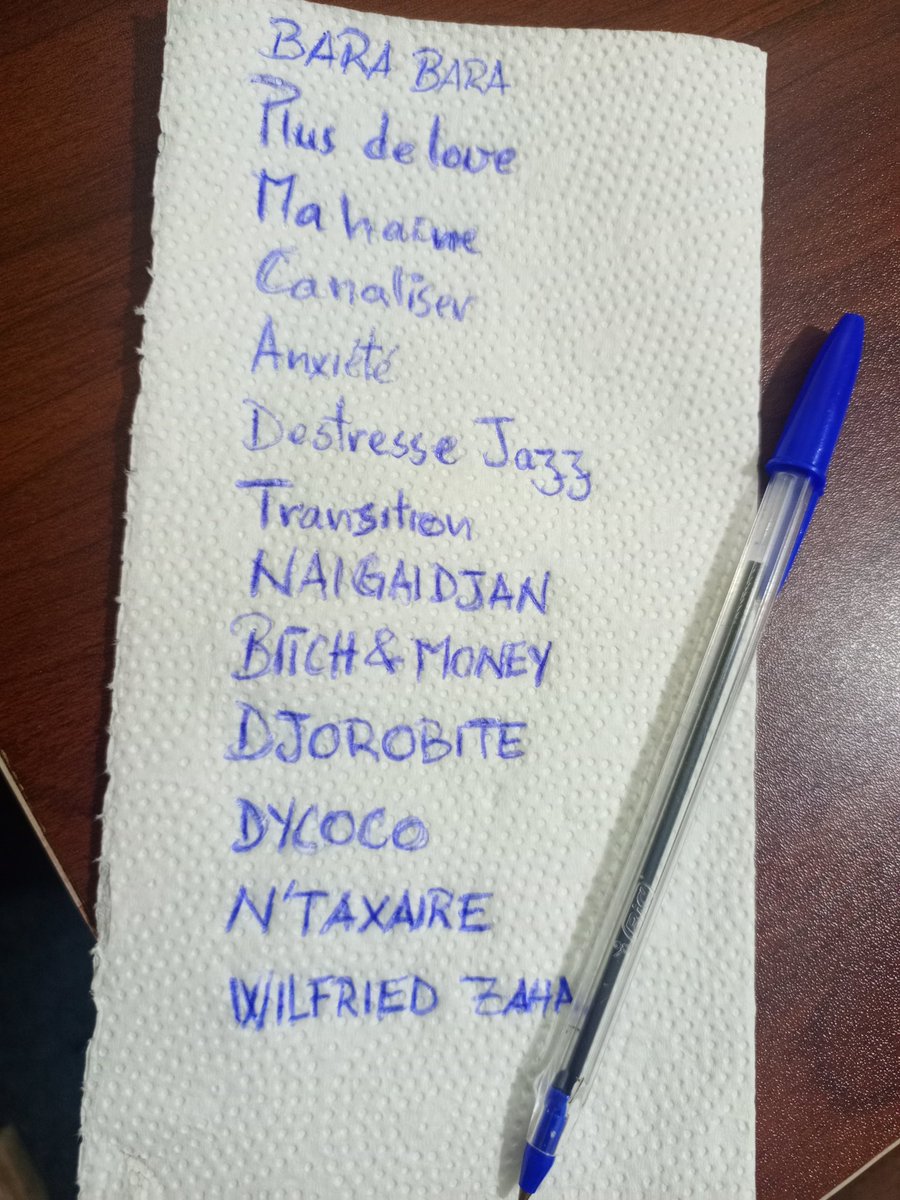 BARA BARA
Plus de love
Ma haine
Canaliser
Anxiété
Destresse Jazz
Transition
NAIGAIDJAN
BITCH & MONEY
DJOROBITE
DYCOCO
N'TAXAIRE
WILFRIED ZAHA